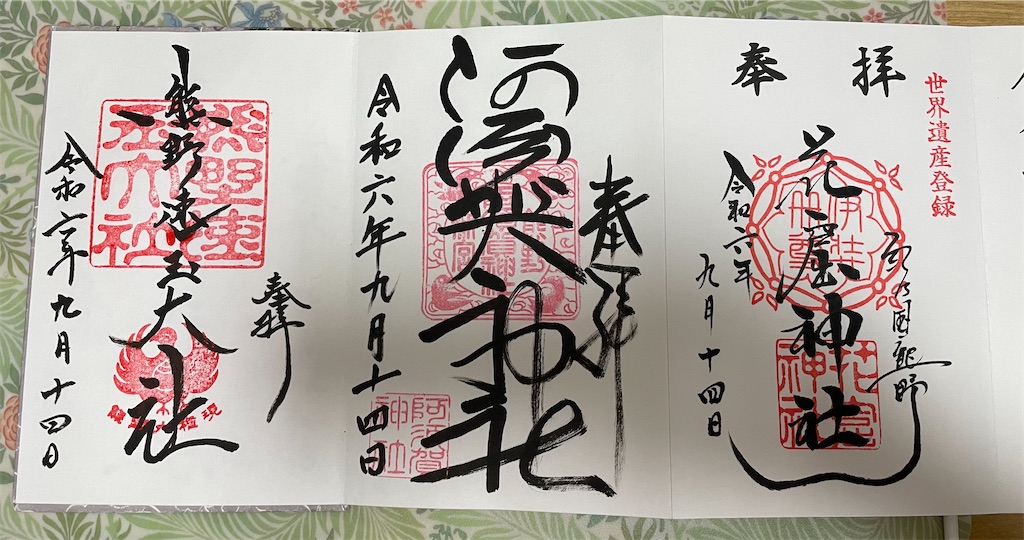 世界遺産登録
奉拝
花窟神社
令和六年
九月十四日
花窟神社
奉拝
阿須賀神社
令和六年九月十四日
阿須賀神社
奉拝
熊野速玉大社
令和六年九月十四日
熊野速玉大社